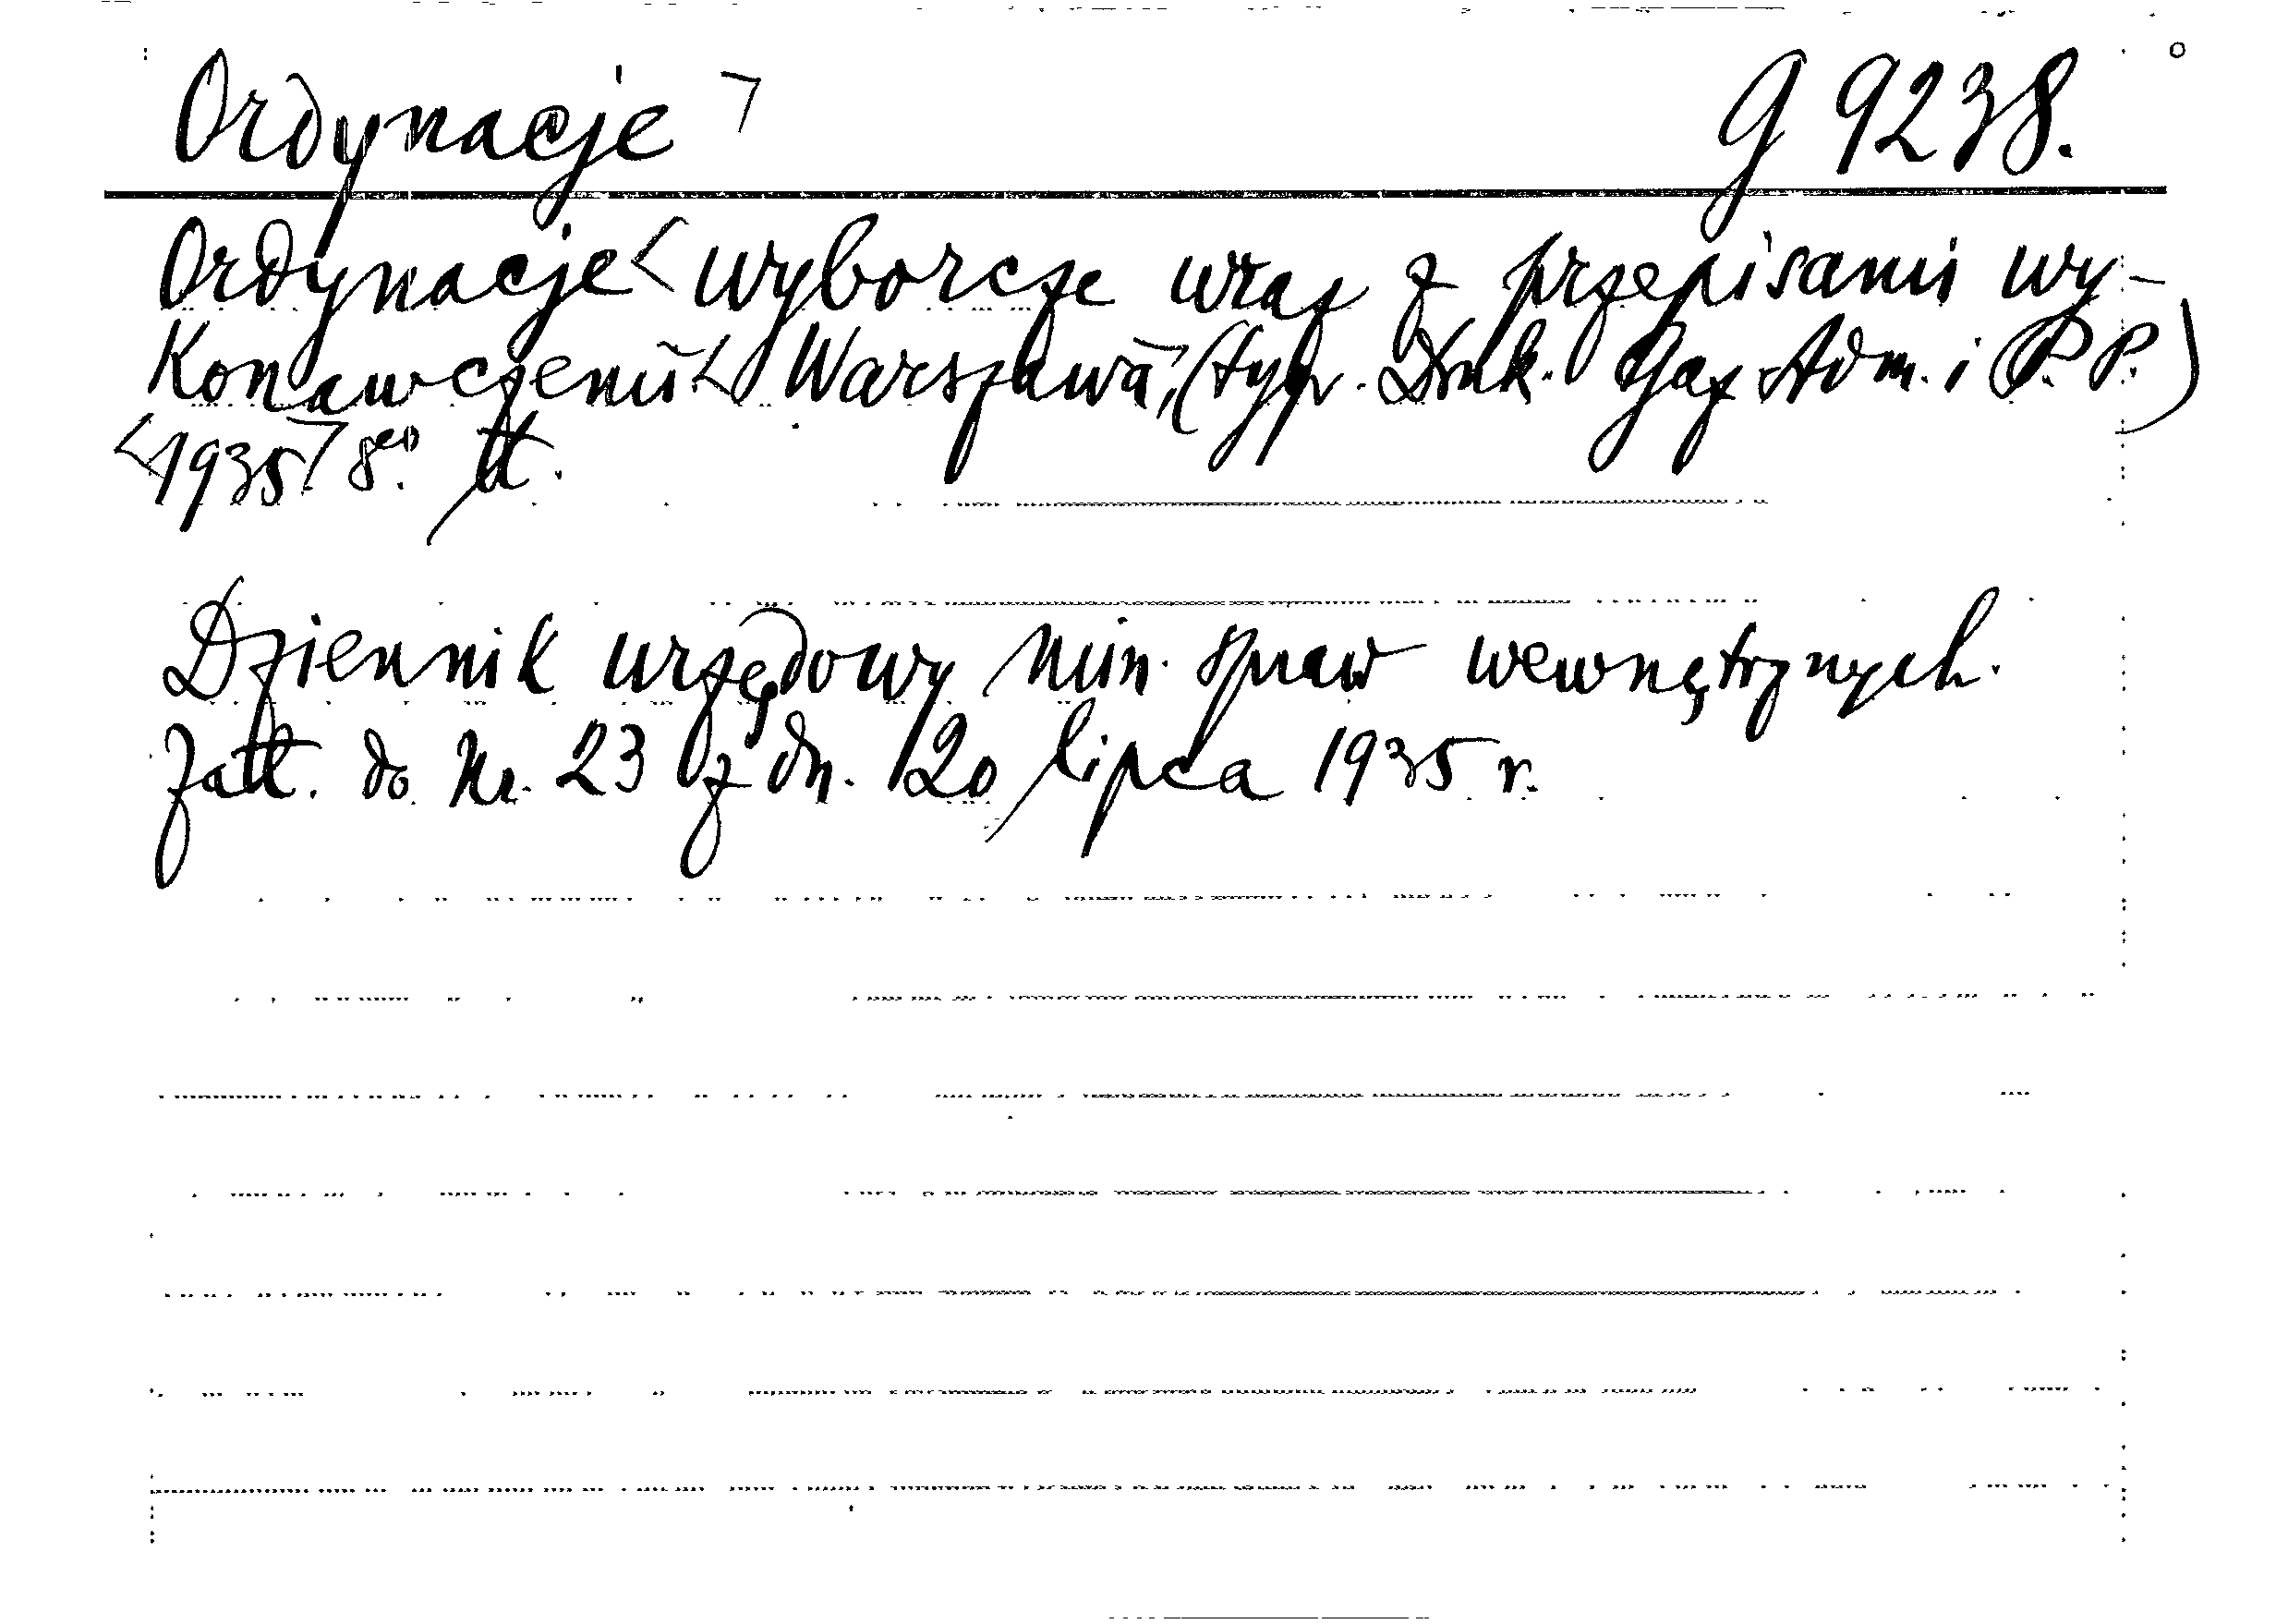 Ordynacje G 9238.
Ordynacje wyborcze wraz z przepisami wy-
konawczemi Warszawa, (typ. Druk. Gaz Adm. i P. P.)
1935 8vo
Dziennik urzędowy Min. Spraw wewnętrznych.
Zał. do Nr. 23 z dn. 20 lipca 1935 r.